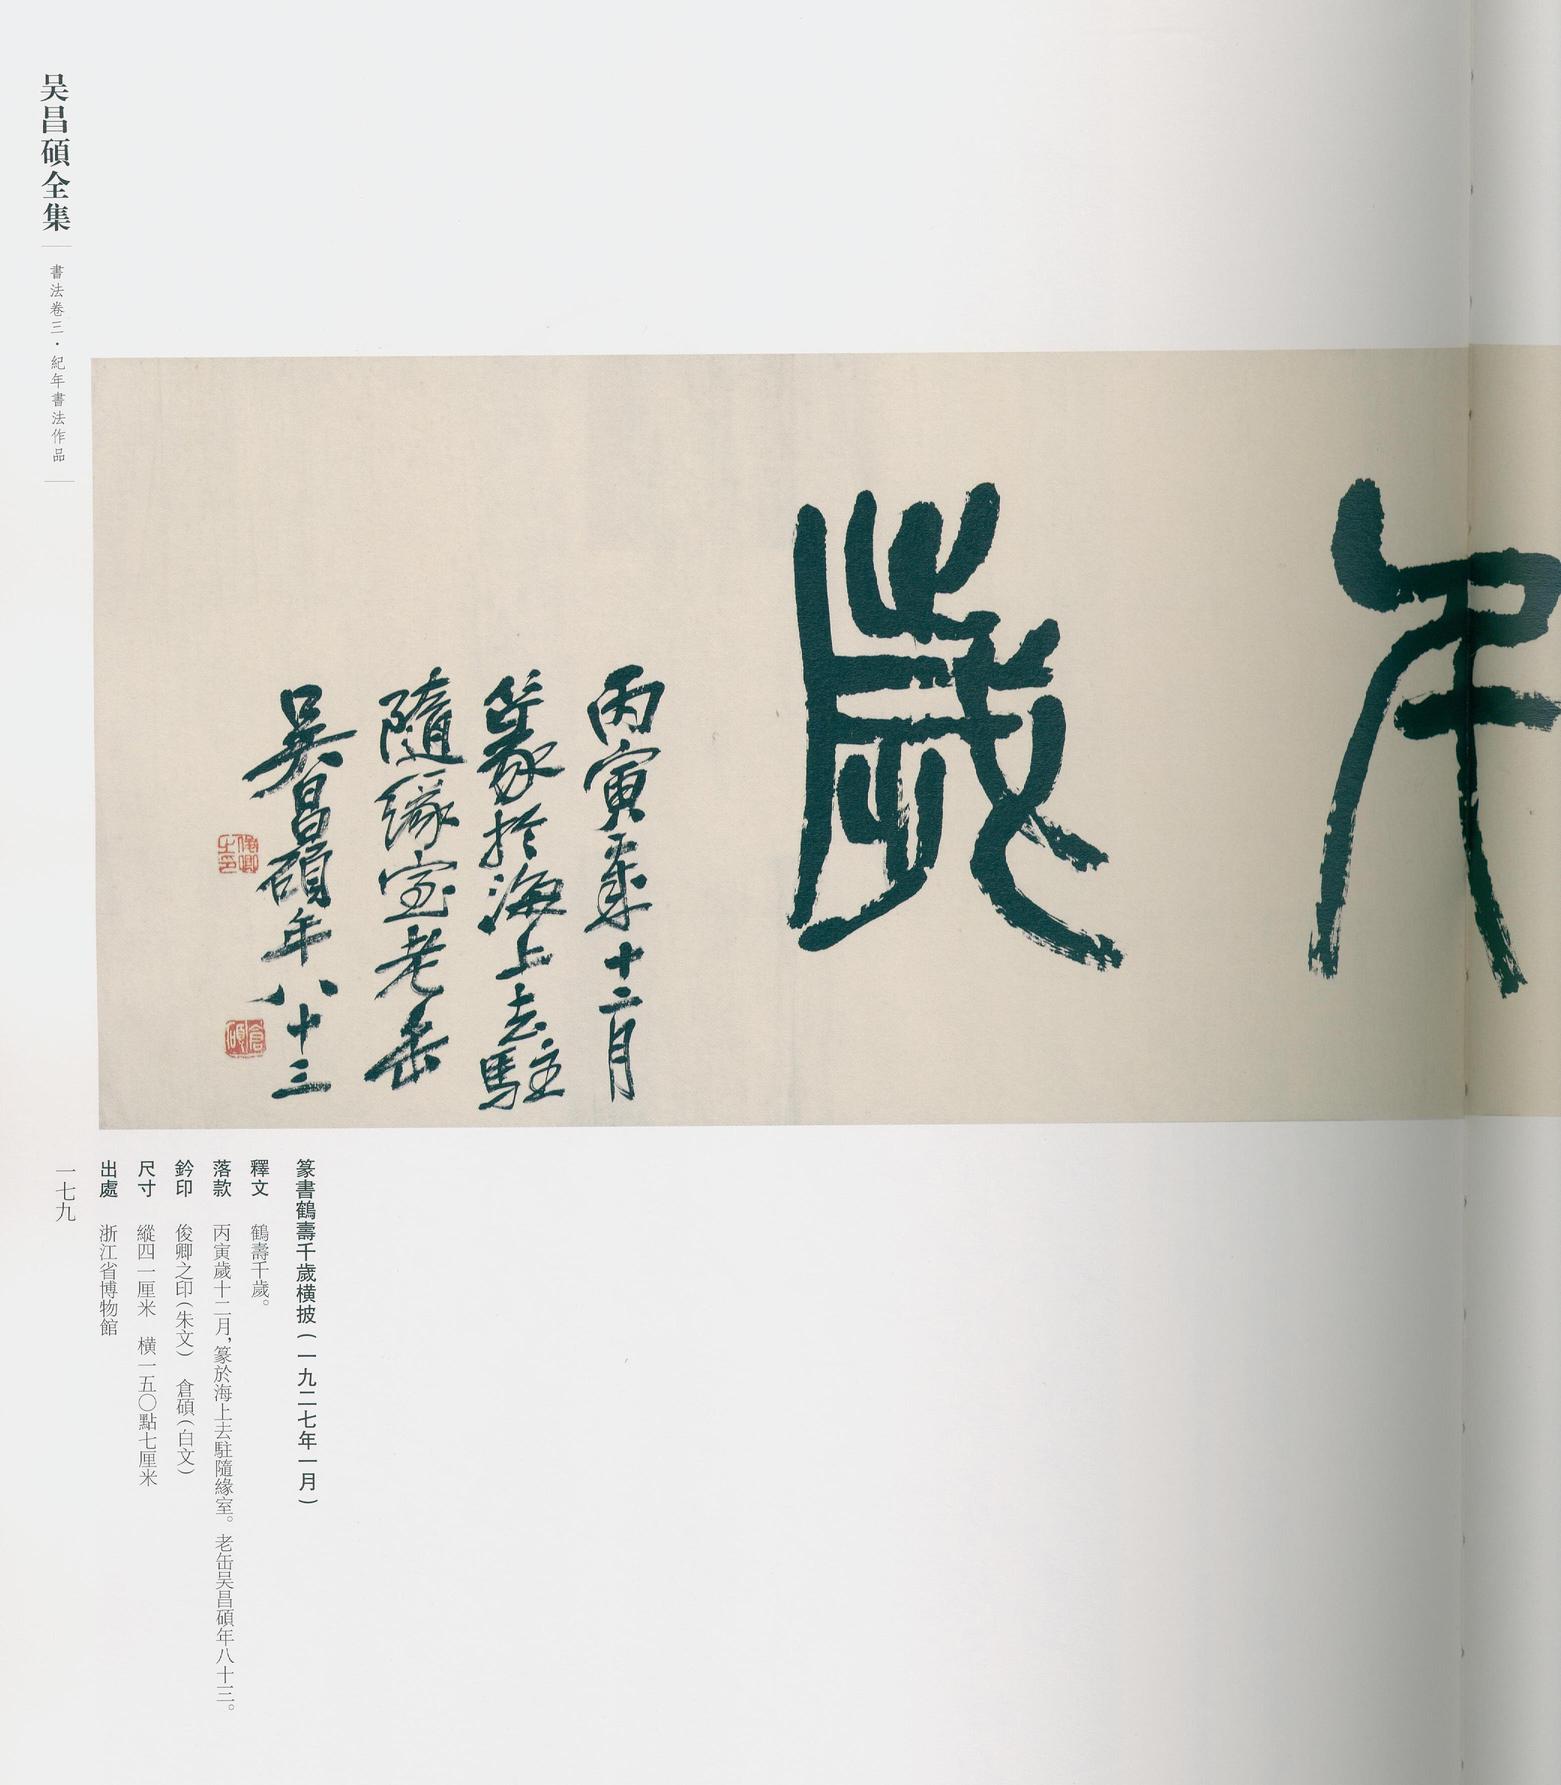 千
歲
丙寅歲十二月
篆於海上去駐
隨緣室老缶
吳昌碩年八十三
俊卿之印
倉碩
篆書鶴壽千歲橫披(一九二七年一月)
釋文 鶴壽千歲。
落款 丙寅歲十二月,篆於海上去駐隨緣室。老缶吴昌碩年八十三。
鈐印 俊卿之印(朱文) 倉碩(白文)
尺寸 縱四一厘米 橫一五〇點七厘米
出處 浙江省博物館
一七九
吴昌碩全集
書法卷三·紀年書法作品